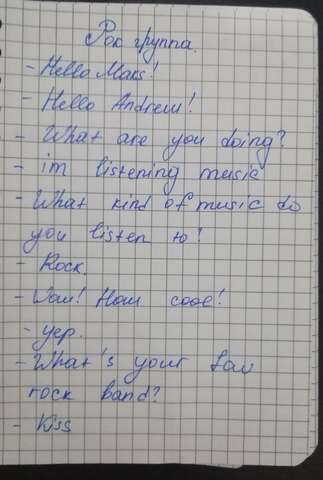 Рок группа.
- Hello Maks!
- Hello Andrew!
- What are you doing?
- im listening music
- What kind of music do
you listen to?
- Rock.
- Wow! How cool!
- yep.
- What's your fav
rock band?
- Kiss